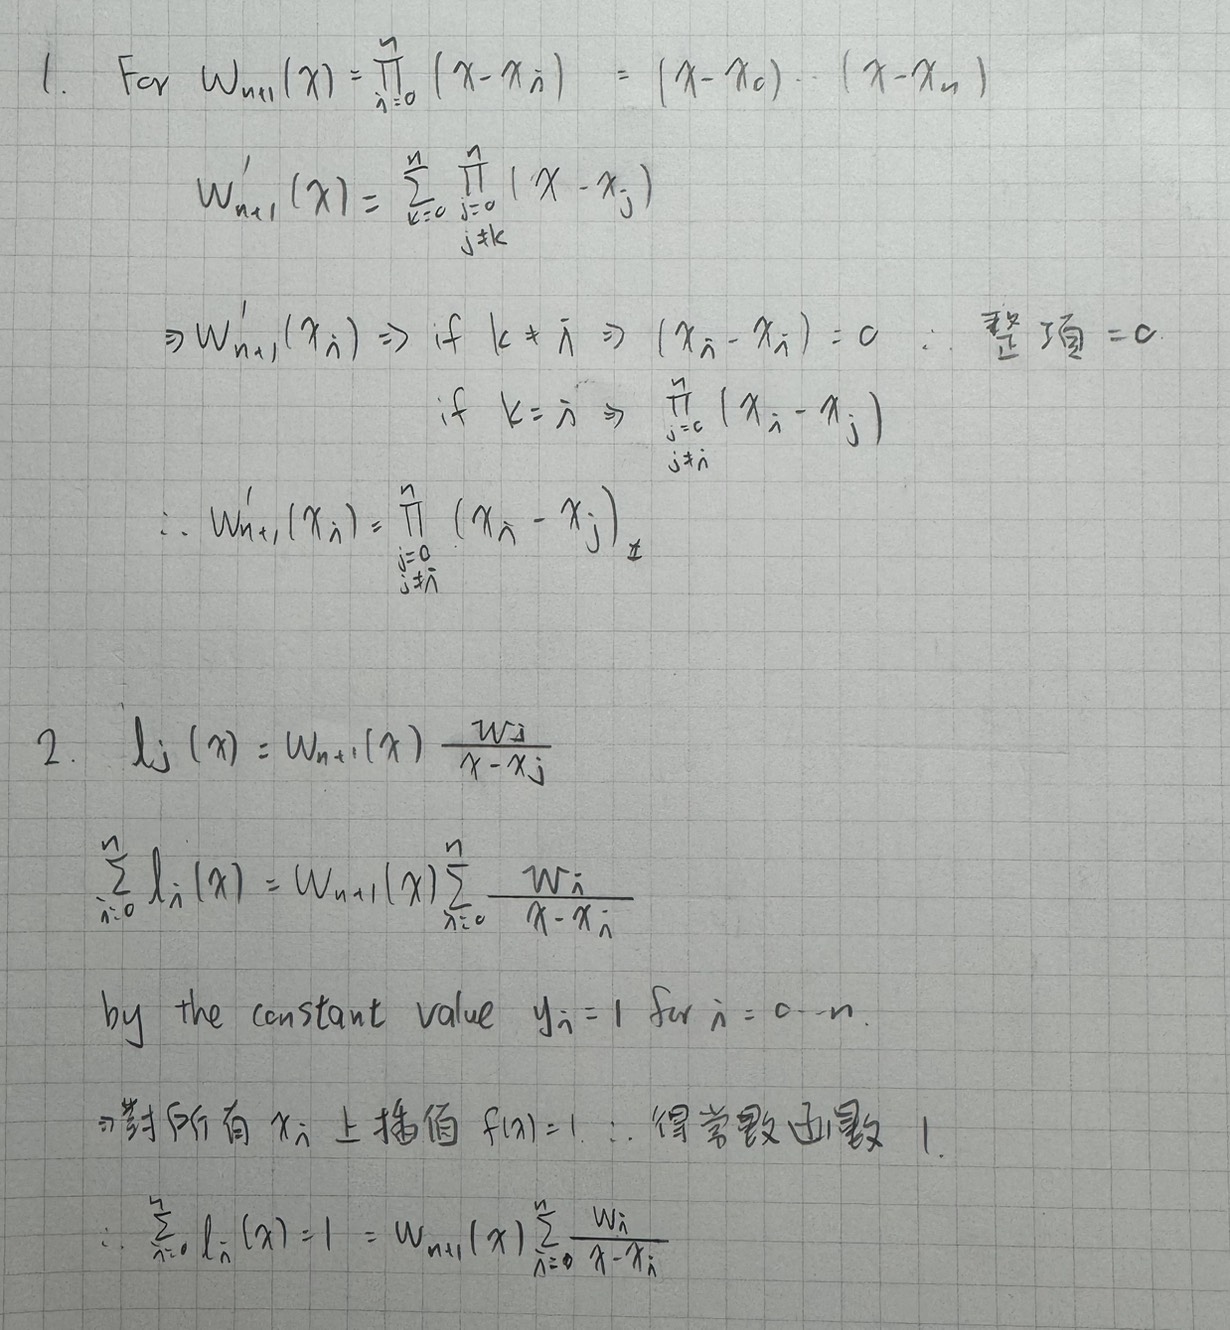 1. For W_{n+1}(x) = \prod_{i=0}^{n} (x - x_i) = (x - x_0) ·· (x - x_n)
W'_{n+1}(x) = \sum_{k=0}^{n} \prod_{j=0, j≠k}^{n} (x - x_j)
⇒ W'_{n+1}(x_i) ⇒ if k ≠ i ⇒ (x_i - x_i) = 0 ∴ 整項 = 0.
if k = i ⇒ \prod_{j=0, j≠i}^{n} (x_i - x_j)
∴ W'_{n+1}(x_i) = \prod_{j=0, j≠i}^{n} (x_i - x_j)
2. l_j(x) = W_{n+1}(x) \frac{w_j}{x - x_j}
\sum_{i=0}^{n} l_i(x) = W_{n+1}(x) \sum_{i=0}^{n} \frac{w_i}{x - x_i}
by the constant value y_i = 1 for i = 0 ·· n.
⇒ 對所有 x_i 上插值 f(x) = 1. ∴ 得常數函數 1.
∴ \sum_{i=0}^{n} l_i(x) = 1 = W_{n+1}(x) \sum_{i=0}^{n} \frac{w_i}{x - x_i}